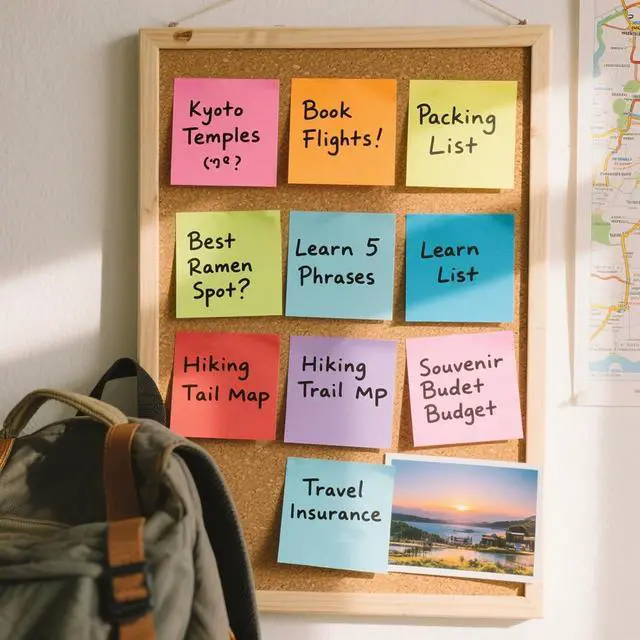 Kyoto
Temples
Book
Flights!
Packing
List
Best
Ramen
Spot?
Learn 5
Phrases
Learn
List
Hiking
Tail Map
Hiking
Trail Mp
Souvenir
Budet
Budget
Travel
Insurance